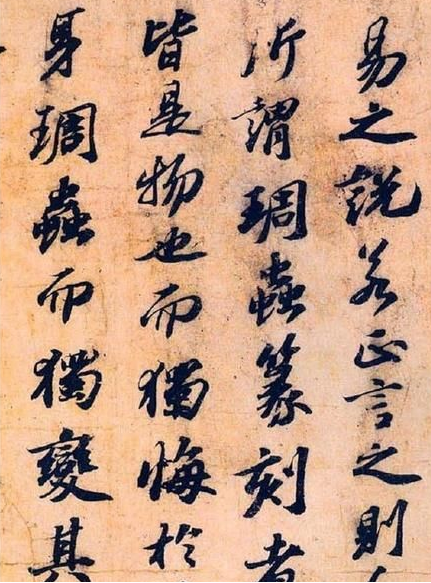 易之說若正言之則
所謂琱蟲篆刻者
皆是物也而獨悔於
身琱蟲而獨變其